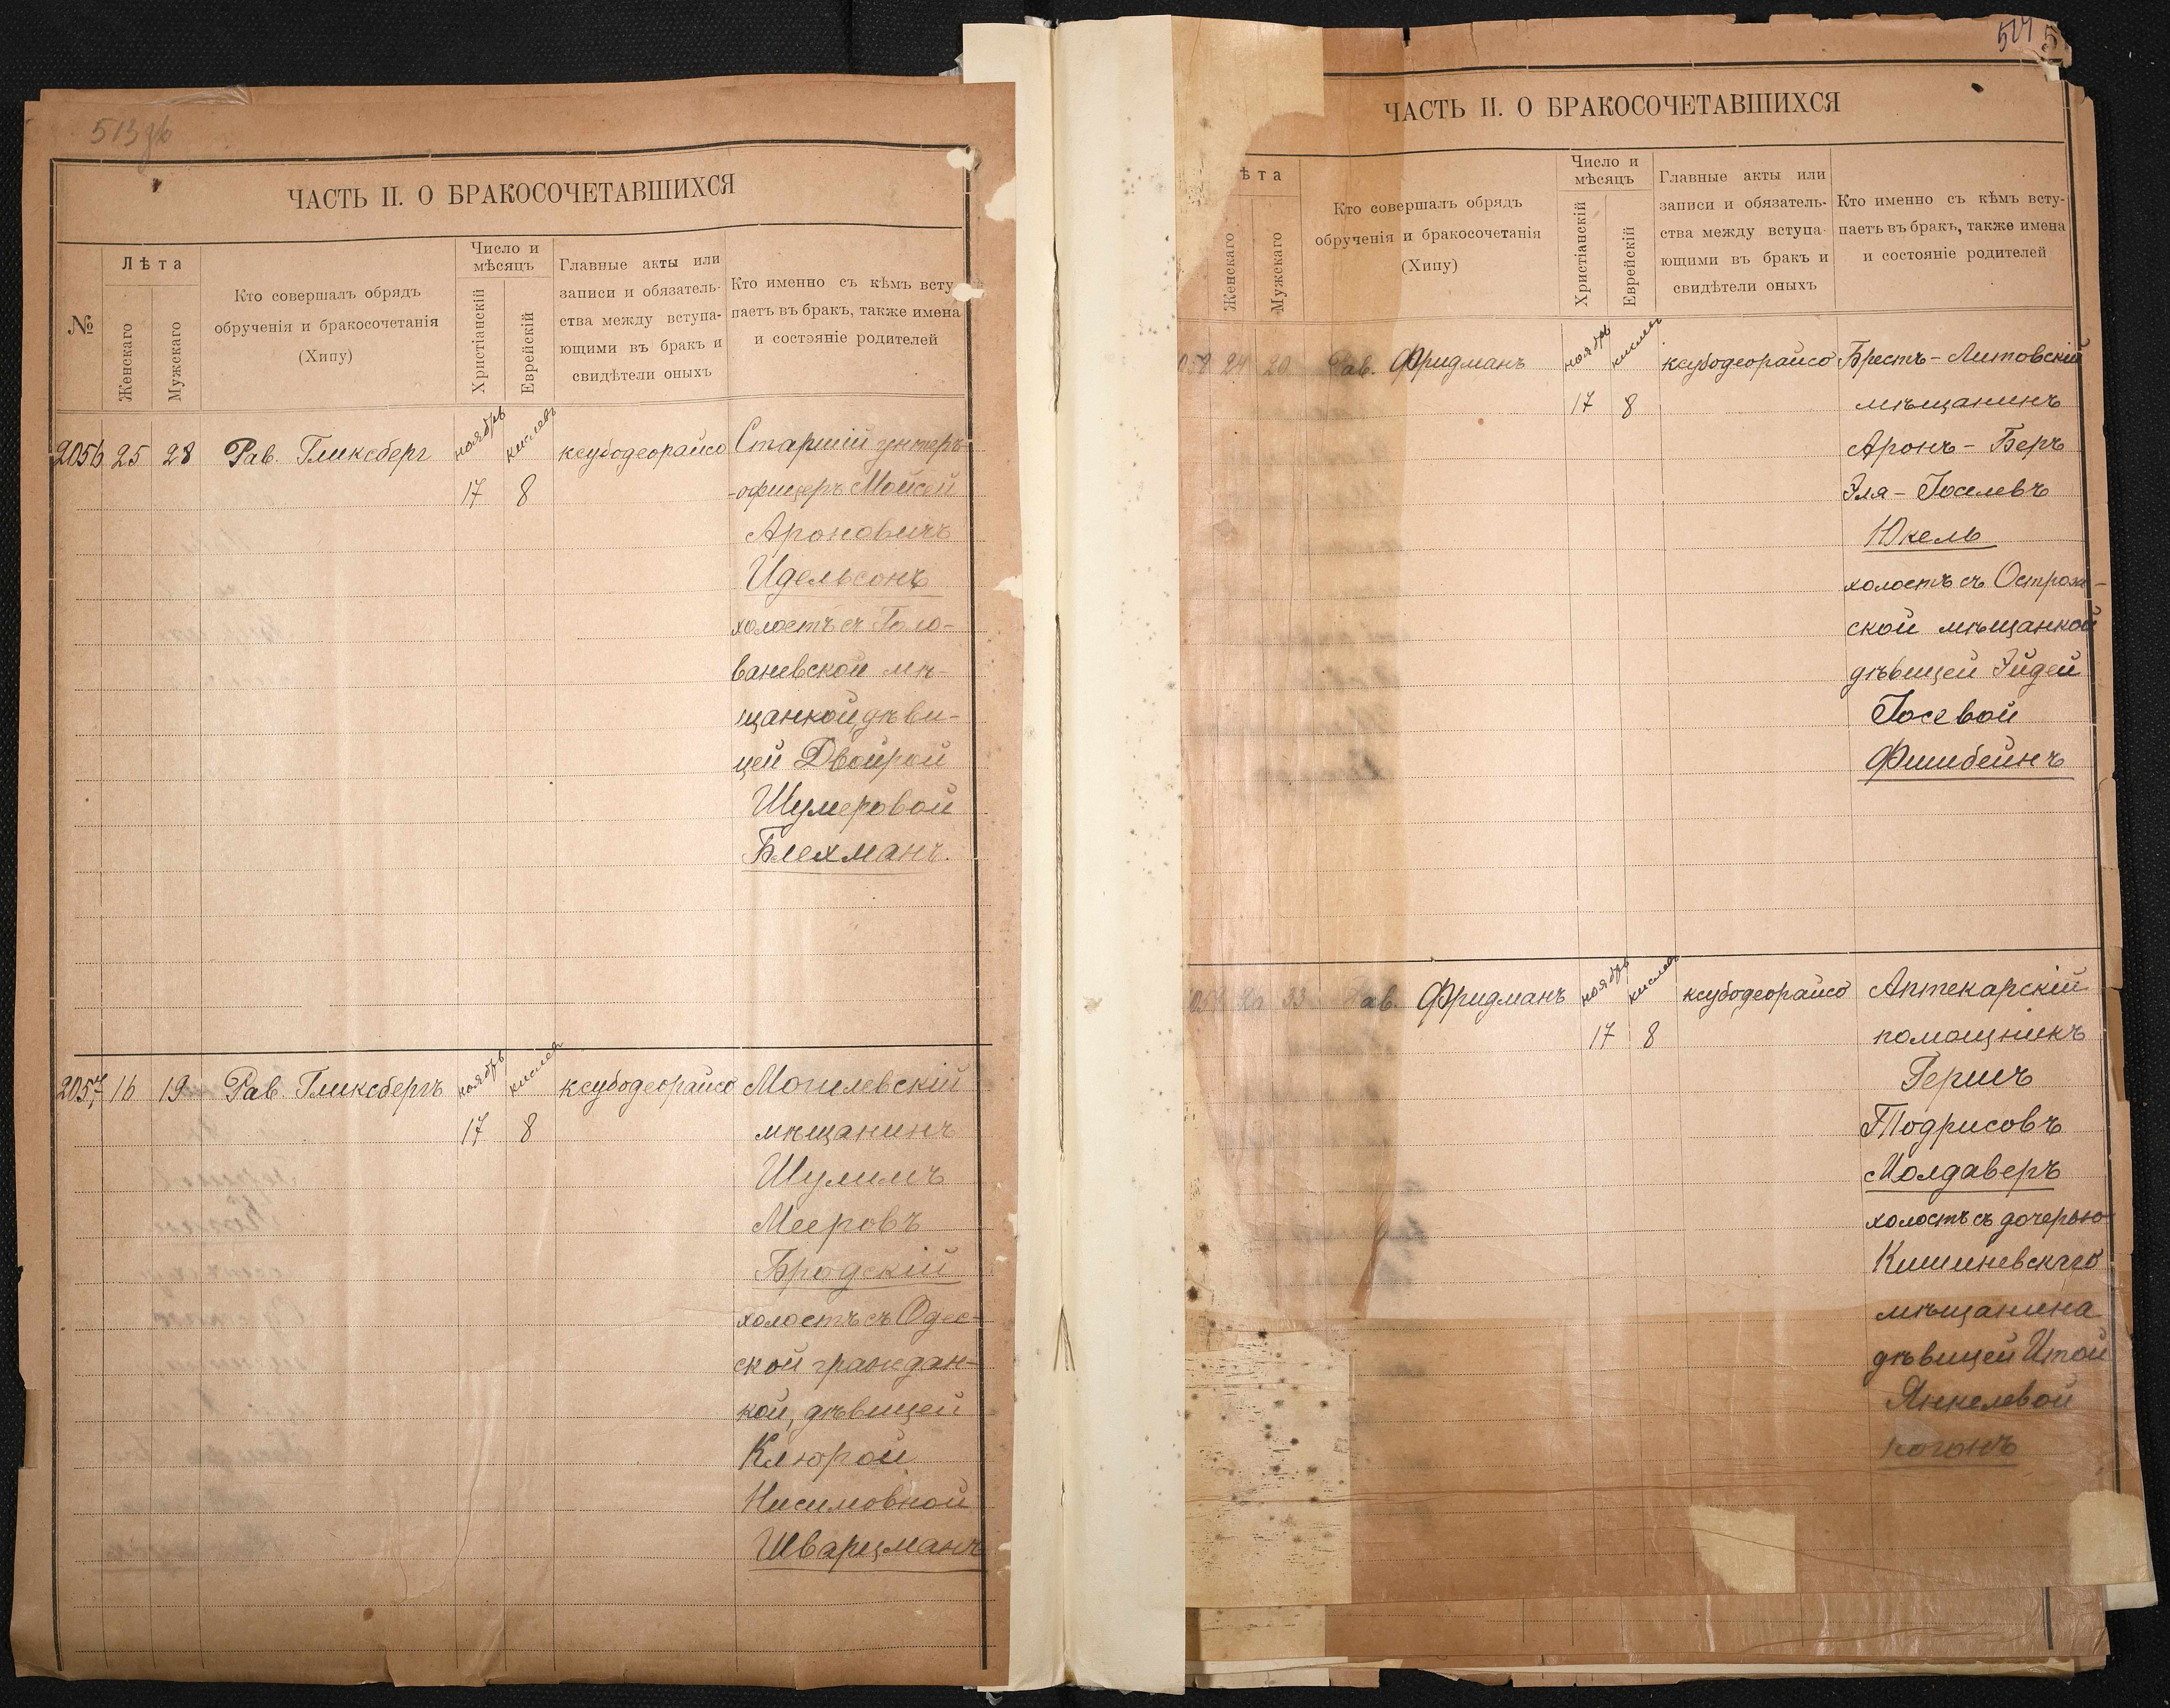 513
ЧАСТЬ II. О БРАКОСОЧЕТАВШИХСЯ
№
Лѣта
Женскаго
Мужскаго
Кто совершалъ обрядъ
обрученія и бракосочетанія
(Хипу)
Число и
мѣсяцъ
Христіанскій
Еврейскій
Главные акты или
записи и обязатель-
ства между вступа-
ющими въ бракъ и
свидѣтели оныхъ
Кто именно съ кѣмъ всту-
паетъ въ бракъ, также имена
и состояніе родителей
2056 25 28 Рав. Гликсберг ноябрь кислевъ ксубодеорайсо Старшій унтеръ
17 8 -офицеръ Мойсей
Ароновичъ
Идельсонъ
холостъ съ Голо-
ваневской мѣ-
щанкой, дѣви-
цей Двойрой
Шумеровой
Блехманъ.
2057 16 19 Рав. Гликсбергъ ноябрь кислев ксубодеорайсо Могилевскій
17 8 мѣщанинъ
Шулимъ
Мееровъ
Бродскій
холостъ съ Одес-
ской граждан-
кой, дѣвицей
Клюрой
Нисимовной
Шварцманъ
514
ЧАСТЬ II. О БРАКОСОЧЕТАВШИХСЯ
ѣта
Женскаго
Мужскаго
Кто совершалъ обрядъ
обрученія и бракосочетанія
(Хипу)
Число и
мѣсяцъ
Христіанскій
Еврейскій
Главные акты или
записи и обязатель-
ства между вступа-
ющими въ бракъ и
свидѣтели оныхъ
Кто именно съ кѣмъ всту-
паетъ въ бракъ, также имена
и состояніе родителей
058 24 20 Рав. Фридманъ ноябрь кислев ксубодеорайсо Брестъ-Литовскій
17 8 мѣщанинъ
Аронъ-Беръ
Эля-Іоселевъ
Юкель
холостъ съ Острож-
ской мѣщанкой
дѣвицей Эйдей
Іосевой
Фишбейнъ
059 26 33 Рав. Фридманъ ноябрь кислев ксубодеорайсо Аптекарскій
17 8 помощникъ
Гершъ
Тодрисовъ
Молдаверъ
холостъ съ дочерью
Кишиневскаго
мѣщанина
дѣвицей Итой
Янкелевой
Когонъ